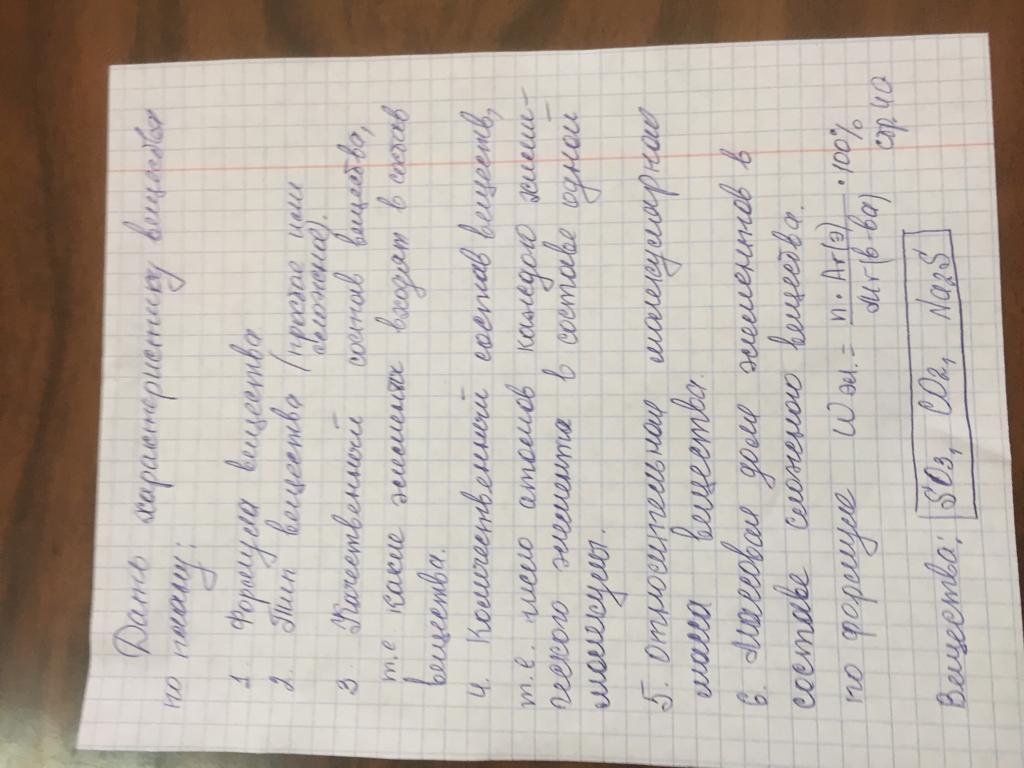 Дать характеристику вещества
по плану:
1. Формула вещества
2. Тип вещества (простое или
сложное).
3. Качественный состав вещества,
т.е. какие элементы входят в состав
вещества.
4. Количественный состав веществ,
т.е. число атомов каждого хими-
ческого элемента в составе одной
молекулы.
5. относительная молекулярная
масса вещества.
6. Массовая доля элементов в
составе сложного вещества.
по формуле W эл. = n · Ar(э) / Mr(в-ва) · 100%
стр 40
Вещества: SO3, CO2, Na2S